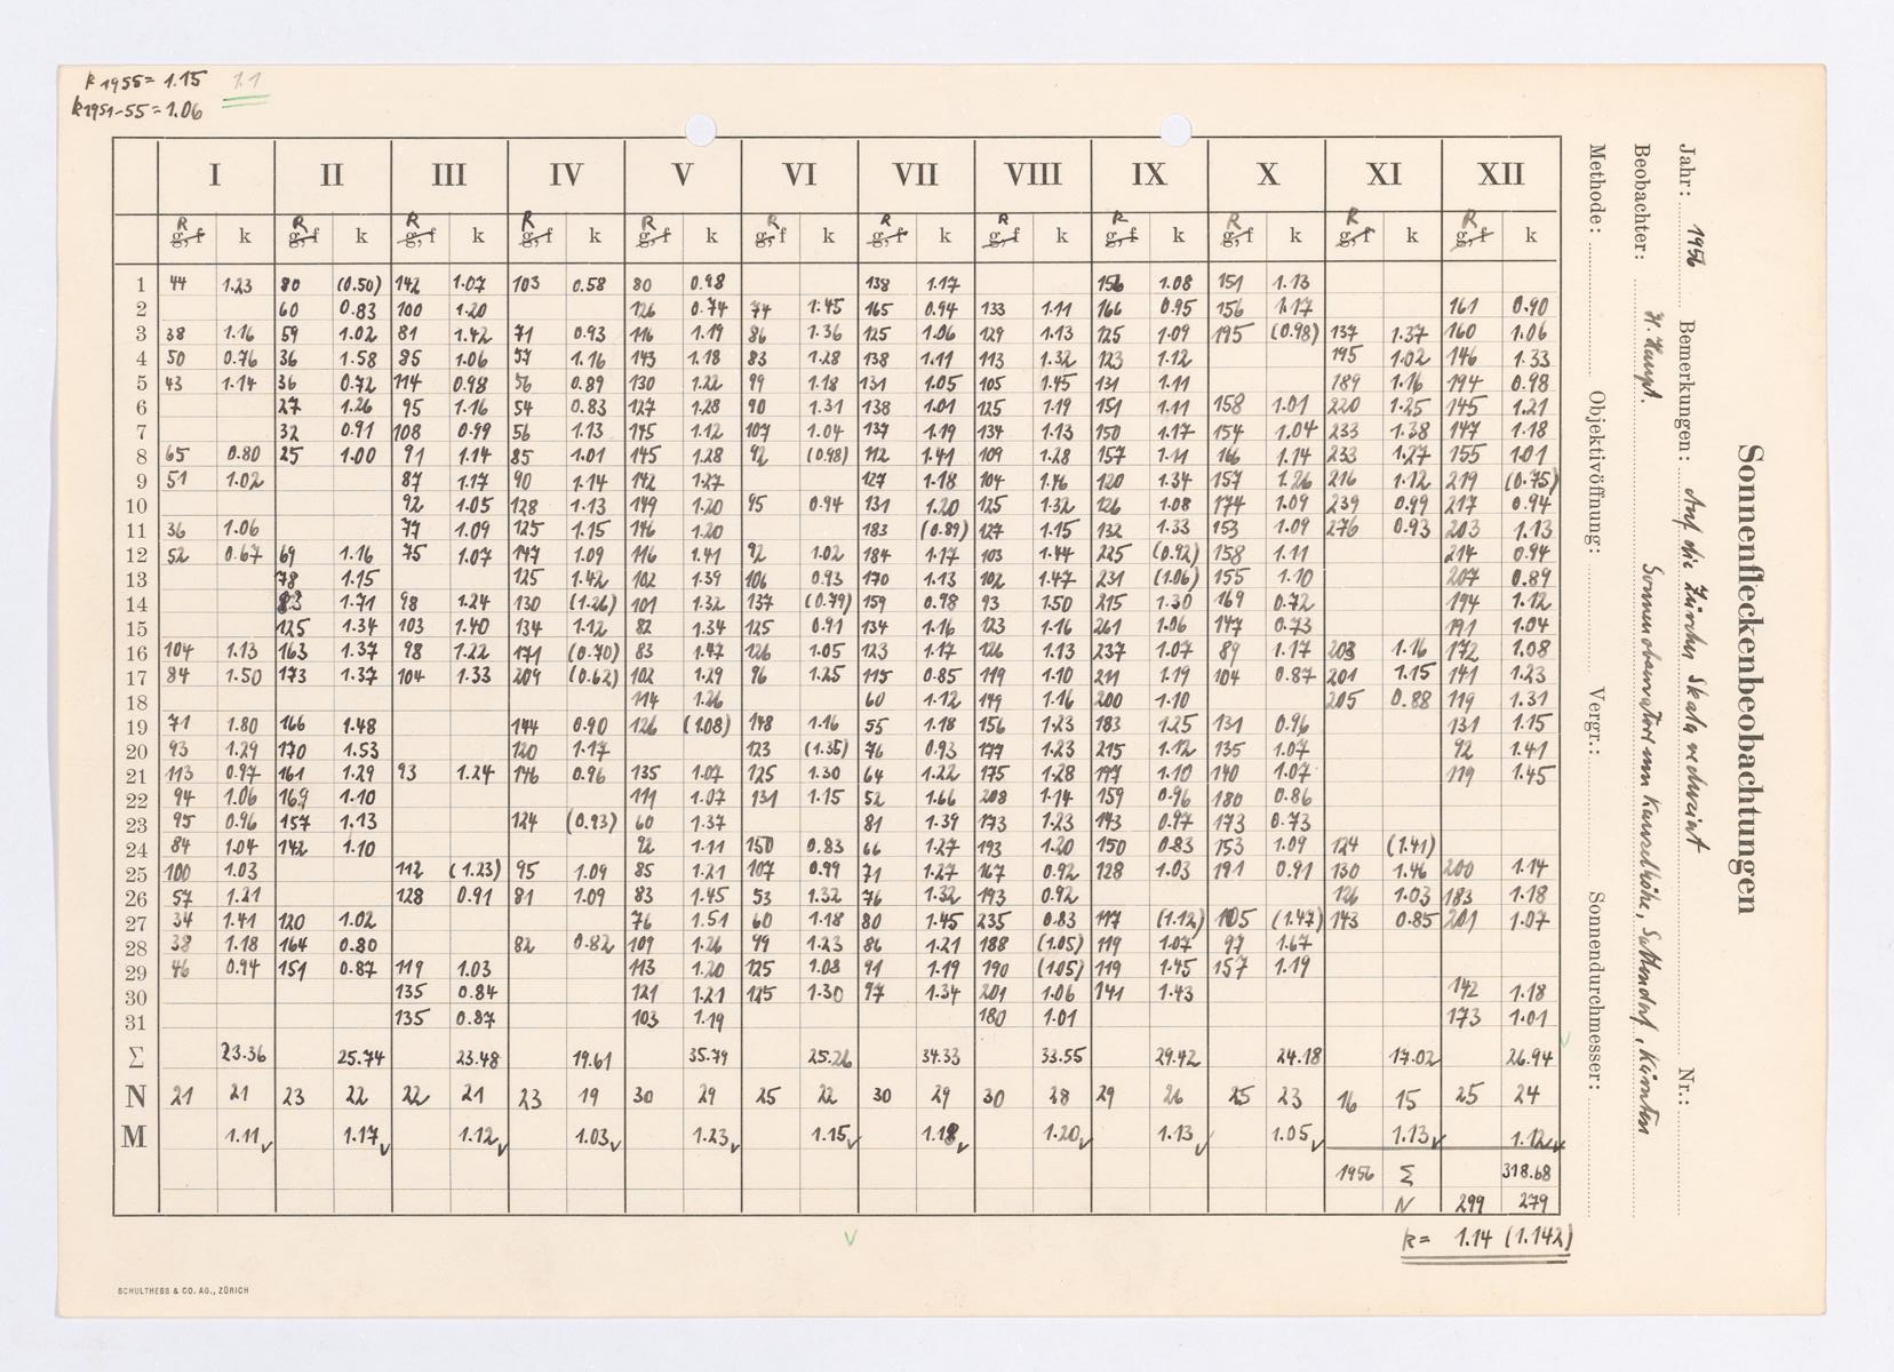 k 1955 = 1.15 1.1
k 1951-55 = 1.06
I II III IV V VI VII VIII IX X XI XII
R g, f k R g, f k R g, f k R g, f k R g, f k R g, f k R g, f k R g, f k R g, f k R g, f k R g, f k R g, f k
1 44 1.23 80 (0.50) 142 1.07 103 0.58 80 0.98 138 1.17 156 1.08 151 1.13
2 60 0.83 100 1.20 126 0.74 74 1.45 165 0.94 133 1.11 166 0.95 156 1.17 161 0.90
3 38 1.16 59 1.02 81 1.42 71 0.93 116 1.19 86 1.36 125 1.06 129 1.13 125 1.09 195 (0.98) 137 1.37 160 1.06
4 50 0.76 36 1.58 85 1.06 57 1.16 143 1.18 83 1.28 138 1.11 113 1.32 123 1.12 195 1.02 146 1.33
5 43 1.14 36 0.72 114 0.98 56 0.89 130 1.22 99 1.18 131 1.05 105 1.45 131 1.11 189 1.16 194 0.98
6 27 1.26 95 1.16 54 0.83 127 1.28 90 1.31 138 1.01 125 1.19 151 1.11 158 1.01 220 1.25 145 1.21
7 32 0.91 108 0.99 56 1.13 145 1.12 107 1.04 137 1.19 134 1.13 150 1.17 154 1.04 233 1.38 147 1.18
8 65 0.80 25 1.00 91 1.14 85 1.01 145 1.28 92 (0.98) 112 1.41 109 1.28 157 1.11 166 1.14 233 1.27 155 1.01
9 51 1.02 87 1.17 90 1.14 142 1.27 127 1.18 104 1.46 120 1.34 157 1.26 216 1.12 219 (0.75)
10 92 1.05 128 1.13 149 1.20 95 0.94 131 1.20 125 1.32 126 1.08 174 1.09 239 0.99 217 0.94
11 36 1.06 77 1.09 125 1.15 146 1.20 183 (0.89) 127 1.15 132 1.33 153 1.09 276 0.93 203 1.13
12 52 0.67 69 1.16 75 1.07 147 1.09 116 1.41 92 1.02 184 1.17 103 1.44 225 (0.92) 158 1.11 214 0.94
13 78 1.15 125 1.42 102 1.39 106 0.93 170 1.13 102 1.47 231 (1.06) 155 1.10 207 0.89
14 83 1.71 98 1.24 130 (1.26) 101 1.32 137 (0.79) 159 0.98 93 1.50 215 1.30 169 0.72 194 1.12
15 125 1.34 103 1.40 134 1.12 82 1.34 125 0.91 134 1.16 123 1.16 261 1.06 147 0.73 191 1.04
16 104 1.13 163 1.37 98 1.22 171 (0.70) 83 1.47 126 1.05 123 1.17 126 1.13 237 1.07 89 1.17 203 1.16 172 1.08
17 84 1.50 173 1.37 104 1.33 209 (0.62) 102 1.29 96 1.25 115 0.85 119 1.10 211 1.19 104 0.87 201 1.15 141 1.23
18 114 1.26 60 1.12 149 1.16 200 1.10 205 0.88 119 1.31
19 71 1.80 166 1.48 144 0.90 126 (1.08) 148 1.16 55 1.18 156 1.23 183 1.25 131 0.96 131 1.15
20 93 1.29 170 1.53 120 1.17 123 (1.35) 76 0.93 177 1.23 215 1.12 135 1.07 92 1.41
21 113 0.97 161 1.29 93 1.24 146 0.96 135 1.07 125 1.30 64 1.22 175 1.28 197 1.10 140 1.07 119 1.45
22 94 1.06 169 1.10 111 1.07 131 1.15 52 1.66 208 1.14 159 0.96 180 0.86
23 95 0.96 157 1.13 124 (0.93) 60 1.37 81 1.39 173 1.23 143 0.97 173 0.73
24 84 1.04 142 1.10 92 1.11 150 0.83 66 1.27 193 1.20 150 0.83 153 1.09 124 (1.41)
25 100 1.03 112 (1.23) 95 1.09 85 1.21 107 0.99 71 1.27 167 0.92 128 1.03 191 0.91 130 1.46 200 1.14
26 57 1.21 128 0.91 81 1.09 83 1.45 53 1.32 76 1.32 193 0.92 126 1.03 183 1.18
27 34 1.41 120 1.02 76 1.51 60 1.18 80 1.45 235 0.83 117 (1.12) 105 (1.47) 143 0.85 201 1.07
28 38 1.18 164 0.80 82 0.82 109 1.26 99 1.23 86 1.21 188 (1.05) 119 1.07 97 1.67
29 46 0.94 151 0.87 119 1.03 113 1.20 125 1.08 91 1.19 190 (1.05) 119 1.45 157 1.19
30 135 0.84 121 1.21 125 1.30 97 1.34 201 1.06 141 1.43 142 1.18
31 135 0.87 103 1.19 180 1.01 173 1.01
Σ 23.36 25.74 23.48 19.61 35.79 25.26 34.33 33.55 29.42 24.18 17.02 26.94
N 21 21 23 22 22 21 23 19 30 29 25 22 30 29 30 28 29 26 25 23 16 15 25 24
M 1.11 1.17 1.12 1.03 1.23 1.15 1.18 1.20 1.13 1.05 1.13 1.12
1956 Σ 318.68
N 299 279
k = 1.14 (1.142)
SCHULTHESS & CO. AG., ZÜRICH
Sonnenfleckenbeobachtungen
Jahr: 1956 Bemerkungen: Auf die Zürcher Skala reduziert Nr.:
Beobachter: H. Haupt. Sonnenobservatorium Kanzelhöhe, Sattendorf, Kärnten
Methode: Objektivöffnung: Vergr.: Sonnendurchmesser: